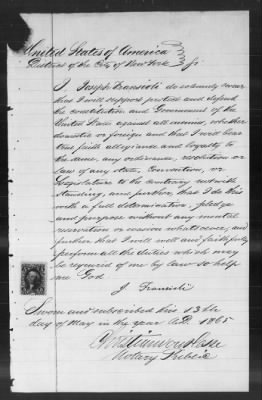 United States of America
District of the City of New York } ss
I, Joseph Fransioli do solemnly swear
that I will support protect and defend
the constitution and Government of the
United States against all enemies, whether
domestic or foreign and that I will bear
true faith allegiance and loyalty to
the same, any ordinance, resolution or
law of any state, Convention, or
Legislature to the contrary notwith
standing, and further, that I do this
with a full determination, pledge
and purpose without any mental
reservation or evasion whatsoever, and
further that I will well and faithfully
perform all the duties which may
be required of me by law so help
me God
J. Fransioli
Sworn and subscribed this 13th
day of May in the year A.D. 1865
Notary Public